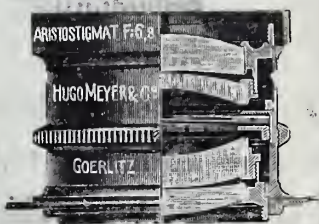 ARISTOSTIGMAT F:6,8
HUGO MEYER & Co
GOERLITZ